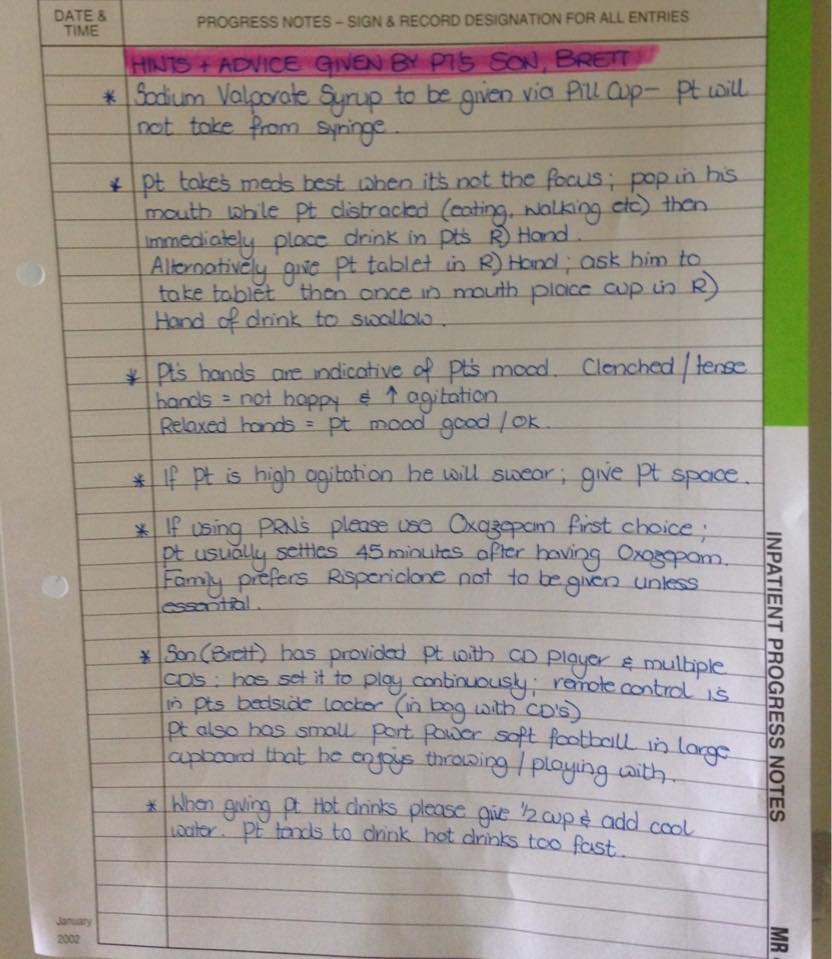 DATE &
TIME
PROGRESS NOTES – SIGN & RECORD DESIGNATION FOR ALL ENTRIES
HINTS + ADVICE GIVEN BY PT'S SON, BRETT
* Sodium Valporate Syrup to be given via Pill Cup – Pt will
not take from syringe.
* Pt takes meds best when it's not the focus; pop in his
mouth while Pt distracted (eating, walking etc) then
immediately place drink in pt's R) Hand.
Alternatively give Pt tablet in R) Hand; ask him to
take tablet then once in mouth place cup in R)
Hand of drink to swallow.
* Pt's hands are indicative of Pt's mood. Clenched / tense
hands = not happy & ↑ agitation
Relaxed hands = pt mood good / OK.
* If Pt is high agitation he will swear; give Pt space.
* If using PRN's please use Oxazepam first choice;
pt usually settles 45 minutes after having Oxazepam.
Family prefers Risperidone not to be given unless
essential.
* Son (Brett) has provided Pt with CD Player & multiple
CD's; has set it to play continuously; remote control is
in pts bedside locker (in bag with CD's)
Pt also has small Port Power soft football in large
cupboard that he enjoys throwing / playing with.
* When giving pt Hot drinks please give 1/2 cup & add cool
water. Pt tends to drink hot drinks too fast.
INPATIENT PROGRESS NOTES
MR
January
2002